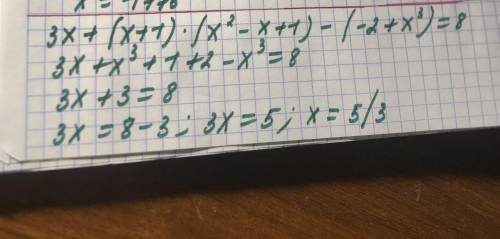 3x+(x+1)·(x²-x+1)-(-2+x³)=8
3x+x³+1+2-x³=8
3x+3=8
3x=8-3; 3x=5; x=5/3